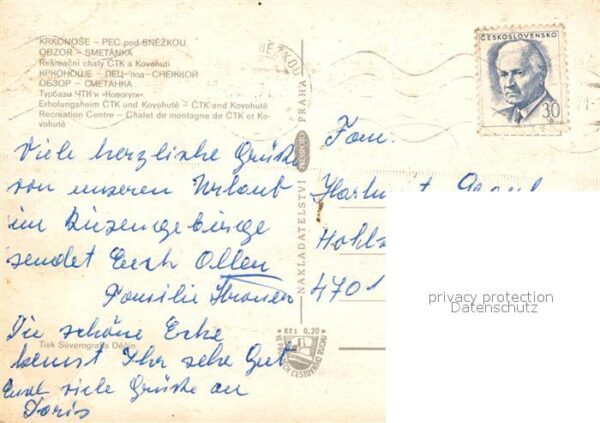 KRKONOŠE – PEC pod SNĚŽKOU
OBZOR – SMETÁNKA
Rekreační chaty ČTK a Kovohutí
КРКОНОШЕ – ПЕЦ-под-СНЕЖКОЙ
ОБЗОР – СМЕТАНКА
Турбазы ЧТК и «Ковогути»
Erholungsheim ČTK und Kovohutě – ČTK and Kovohutě
Recreation Centre – Chalet de montagne de ČTK et Ko-
vohutě
Viele herzliche Grüße
von unserem Urlaub
im Riesengebirge
sendet Euch Allen
Familie
Die schöne Ecke
kennt Ihr sehr gut
Euch viele Grüße an
Doris
Tisk Severografia Děčín
NAKLADATELSTVÍ PRESSFOTO PRAHA
Kčs 0,20
ČESKOSLOVENSKO
30
Fam.
Hartmut
4701
privacy protection
Datenschutz